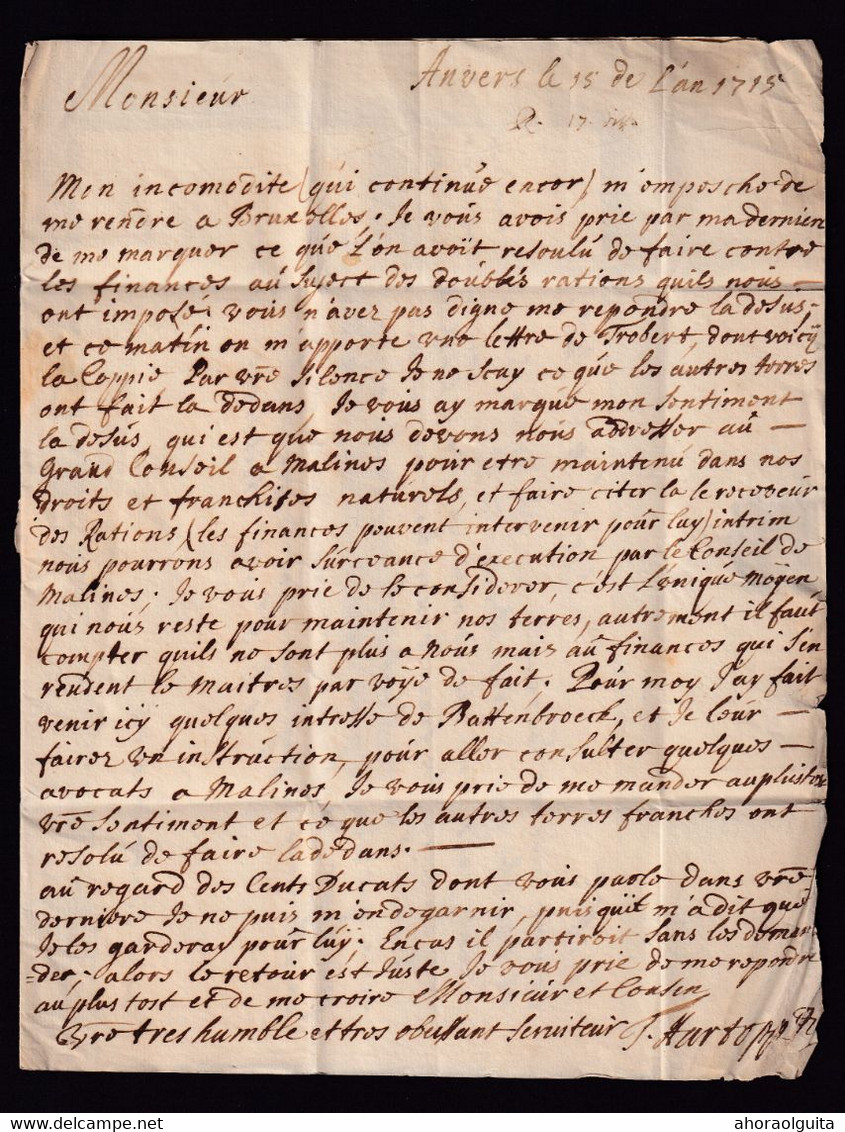 Anvers le 15 de L'an 1715
Monsieur
R. 17
Mon incomodite (qui continue encor) m'emposche de
me rendre a Bruxelles; Je vous avois prie par ma derniere
de me marquer ce que L'on avoit resoulu de faire contre
les finances au suject des doubles rations quils nous —
ont imposé; vous n'avez pas digne me repondre la desus;
et ce matin on m'apporte une lettre de Trobert, dont voicy
la Coppie. Par vre silence Je ne scay ce que les autres terres
ont fait la dedans, Je vous ay marque mon sentiment
la desus, qui est que nous devons nous addresser au —
Grand Conseil a Malines pour etre maintenu dans nos
droits et franchises naturels, et faire citer la le receveur
des Rations, (les finances peuvent intervenir pour luy) intrim
nous pourrons avoir surceance d'execution par le Conseil de
Malines. Je vous prie de le considerer, c'est L'unique moyen
qui nous reste pour maintenir nos terres, autrement il faut
compter quils ne sont plus a nous mais au finances qui s'en
rendent le maitres par voye de fait; Pour moy J'ay fait
venir icy quelques intresse de Battenbroeck, et Je leur —
fairez un instruction, pour aller consulter quelques —
avocats a Malines, Je vous prie de me mander au plustos
vre sentiment et ce que les autres terres franches ont
resolu de faire ladedans. —
au regard des Cents Ducats dont vous parle dans vre
derniere Je ne puis m'en degarnir, puis quil m'a dit que
Je les garderay pour luy; Encas il partiroit sans les deman
=der, alors le retour est Juste Je vous prie de me repondre
au plus tost et de me croire Monsieur et Cousin
vre tres humble et tres obeissant serviteur J. Hartopp
www.delcampe.net
ahoraolguita